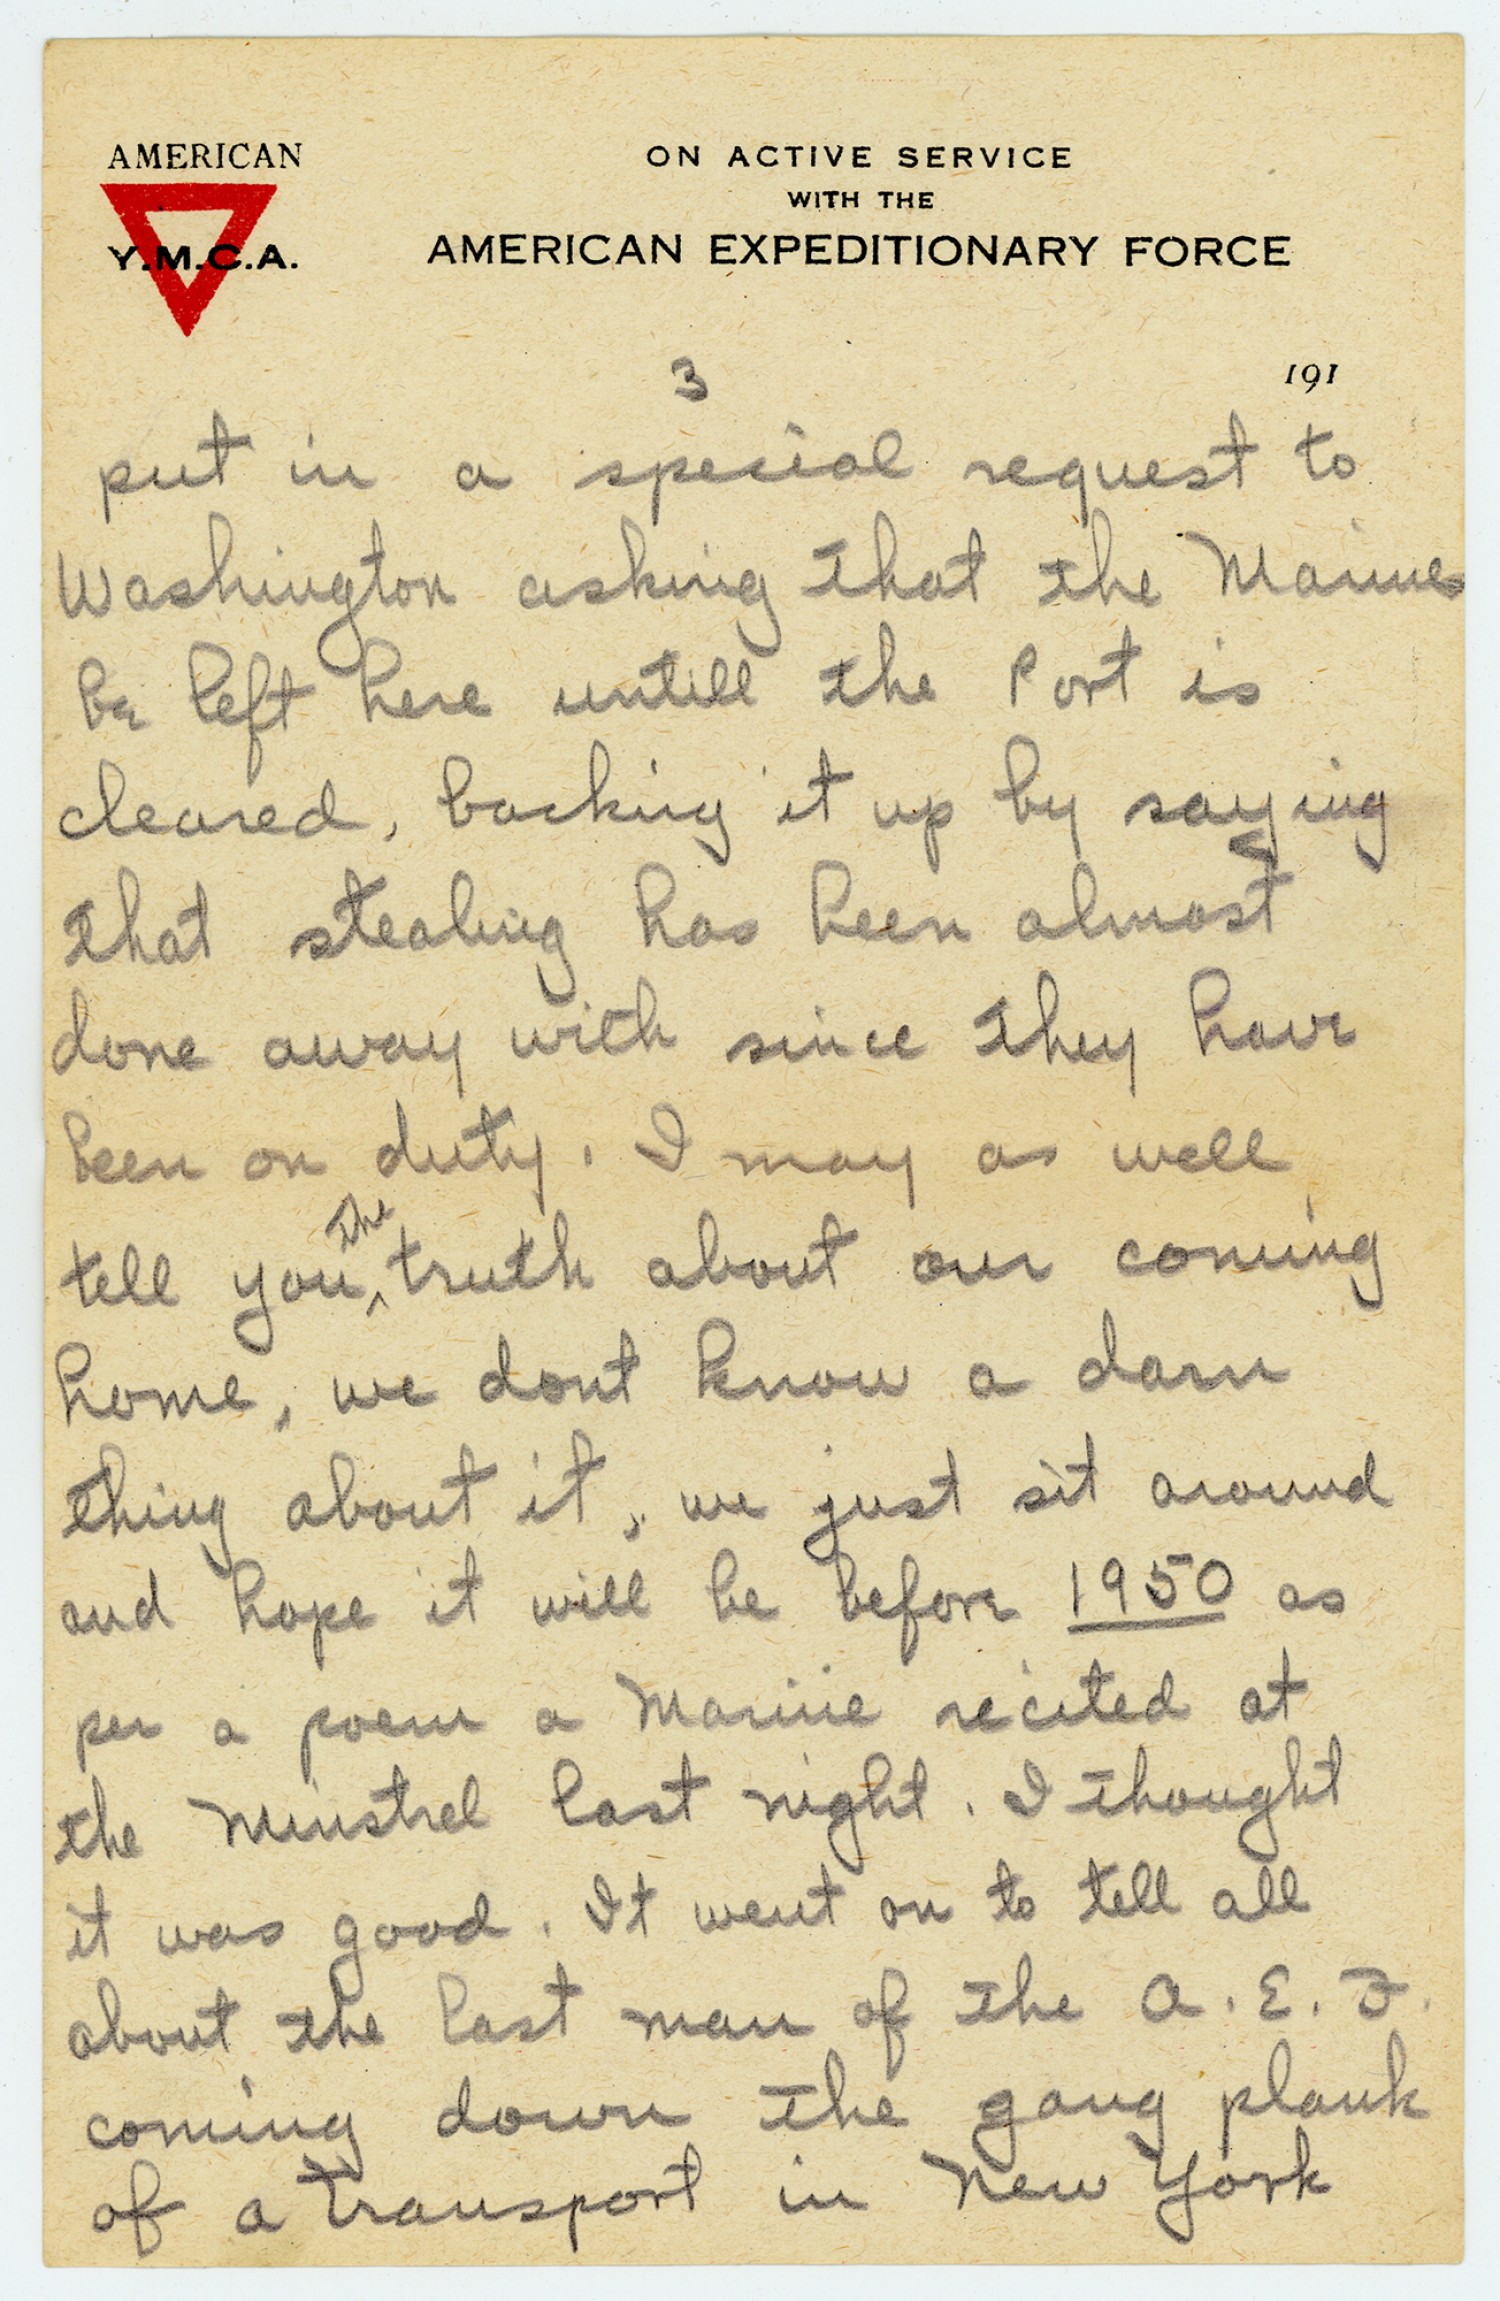 AMERICAN
Y.M.C.A.
ON ACTIVE SERVICE
WITH THE
AMERICAN EXPEDITIONARY FORCE
3
191
put in a special request to
Washington asking that the Marines
be left here untill the Port is
cleared, backing it up by saying
that stealing has been almost
done away with since they have
been on duty. I may as well
tell you the truth about our coming
home, we dont know a darn
thing about it, we just sit around
and hope it will be before 1950 as
per a poem a Marine recited at
the Minstrel last night. I thought
it was good. It went on to tell all
about the last man of the A.E.F.
coming down the gang plank
of a transport in New York